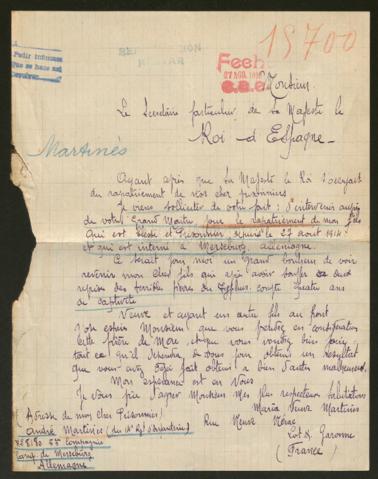 Pedir informes
Que se haga así
15700
Fech
27 AGO. 1918
Monsieur
Le Secrétaire particulier de Sa Majesté le
Roi d'Espagne_
Martinès
Ayant appris que Sa Majesté le Roi s'occupait
du rapatriement de nos cher prisonniers
Je viens solliciter de votre part : d'intervenir auprès
de votre Grand Maitre pour le rapatriement de mon fils
qui est blessé et Prisonnier depuis le 27 août 1914
et qui est interné à Merseburg Allemagne.
Ce serait pour moi un grand bonheur de voir
revenir mon cher fils qui après avoir souffert deux
reprises des terrible fièvres du Typhus compte quatre ans
de captivité
Veuve et ayant un autre fils au front
J'ose espérer Monsieur que vous prendrez en considération
cette prière de Mère et que vous voudrez bien faire
tout ce qu'il dépendra de vous pour obtenir un résultat
que vous avez déjà fait obtenir a bien d'autres malheureux.
Mon espérance est en Vous
Je vous prie d'agréer Monsieur mes plus respectueuses salutations
Maria Veuve Martinès
Rue Neuve Nérac
Lot & Garonne
(France)
Adresse de mon cher Prisonnier
André Martinès (du
Nº 8180 5e Compagnie
Camp de Merseburg
Allemagne